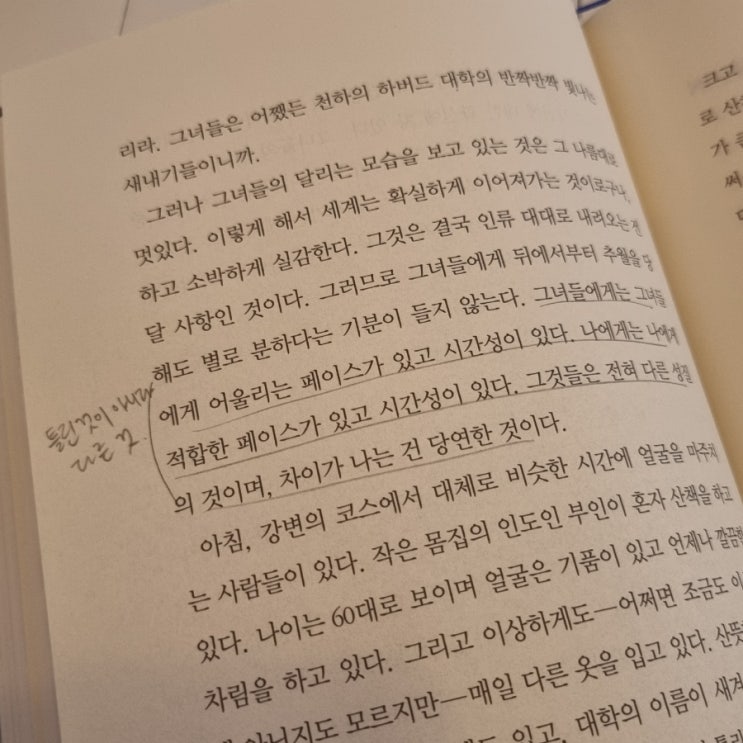 리라. 그녀들은 어쨌든 천하의 하버드 대학의 반짝반짝 빛나는
새내기들이니까.
그러나 그녀들의 달리는 모습을 보고 있는 것은 그 나름대로
멋있다. 이렇게 해서 세계는 확실하게 이어져가는 것이로구나,
하고 소박하게 실감한다. 그것은 결국 인류 대대로 내려오는 전
달 사항인 것이다. 그러므로 그녀들에게 뒤에서부터 추월을 당
해도 별로 분하다는 기분이 들지 않는다. 그녀들에게는 그녀들
에게 어울리는 페이스가 있고 시간성이 있다. 나에게는 나에게
적합한 페이스가 있고 시간성이 있다. 그것들은 전혀 다른 성질
의 것이며, 차이가 나는 건 당연한 것이다.
틀린 것이 아니라
다른 것.
아침, 강변의 코스에서 대체로 비슷한 시간에 얼굴을 마주치
는 사람들이 있다. 작은 몸집의 인도인 부인이 혼자 산책을 하고
있다. 나이는 60대로 보이며 얼굴은 기품이 있고 언제나
차림을 하고 있다. 그리고 이상하게도―어쩌면 조금도 이
아닌지도 모르지만―매일 다른 옷을 입고 있다.
있고, 대학의 이름이
크고
로
가